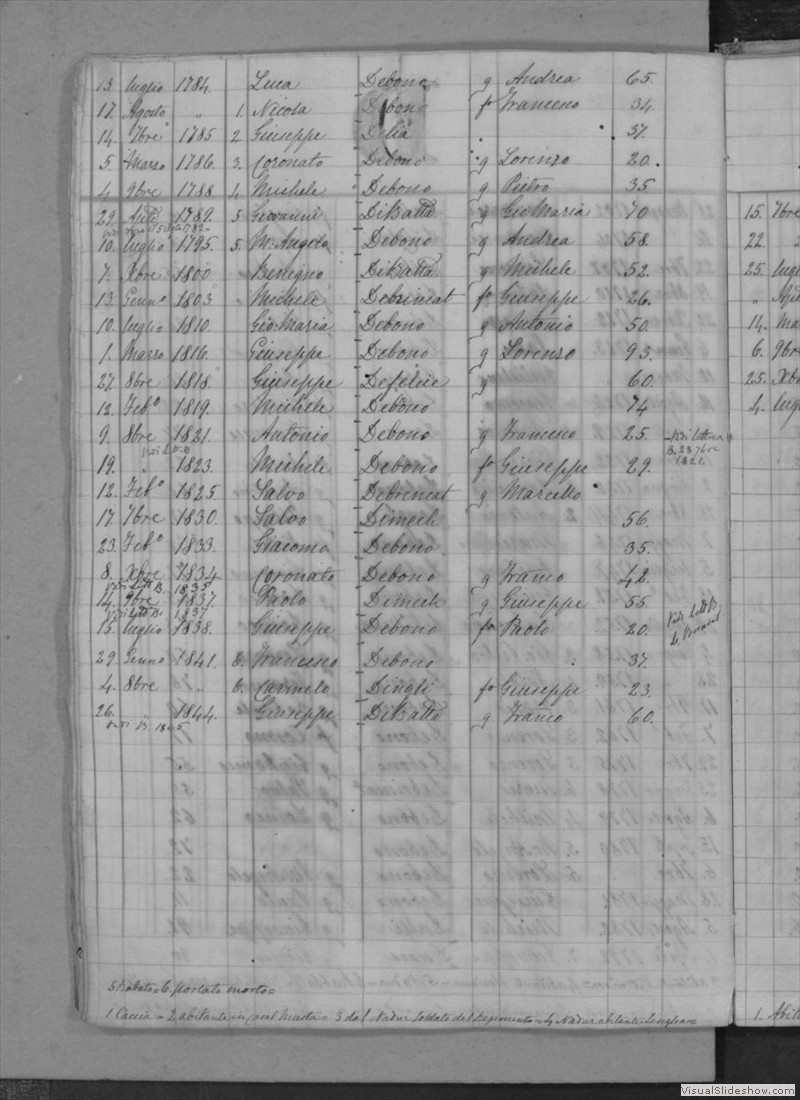 13. luglio 1784. Luca Debono g Andrea 65.
17. Agosto „ 1. Nicola Debono f Francesco 34
14. 7bre 1785 2. Giuseppe Delia 57.
5. Marzo 1786. 3. Coronato Debono g Lorenzo 20.
4. 9bre 1788 4. Michele Debono g Pietro 35
29. 1789. 5 Giovanni DiBatta g Gio Maria 70
10. luglio 1795 5. M. Angelo Debono g Andrea 58.
7. Xbre 1800 Benigno DiBatta g Michele 52.
13. Genno 1803 Michele Debrincat f Giuseppe 26.
10. luglio 1810. Gio Maria Debono g Antonio 50.
1. Marzo 1816. Giuseppe Debono g Lorenzo 93.
27. 8bre 1818. Giuseppe Defelice g 60.
12. Febo 1819. Michele Debono 74
9. 8bre 1821. Antonio Debono g Francesco 25. vidi lettera
B. 28 7bre
1821.
19. „ 1823. Michele Debono f Giuseppe 29.
12. Febo 1825. Salvo Debrincat g Marcello
17. 7bre 1830. Salvo Dimech 56.
23. Febo 1833. Giacomo Debono 35.
8. Xbre 1834 Coronato Debono g Franco 42.
vidi Lett B. 1835
14. 9bre 1837. Paolo Dimech g Giuseppe 55.
vidi Lett B. 1837
15. luglio 1838. Giuseppe Debono fo Paolo 20. Vidi Lett B.
29. Genno 1841. 8. Francesco Debono 37.
4. 8bre „ 6. Carmelo Dingli fo Giuseppe 23.
26. „ 1844. Giuseppe DiBatta g Franco 60.
vidi B 1845
6 portato morto =
1 Caccia = 2 abitante in Casal Musta = 3 dal Nadur Soldato del Regimento = 4 Nadur abitante Senglea =
15. 7bre
22. „
25. lug
14. Ma
6. 9bre
25. Xbr
4. lug
1. Abit
VisualSlideshow.com